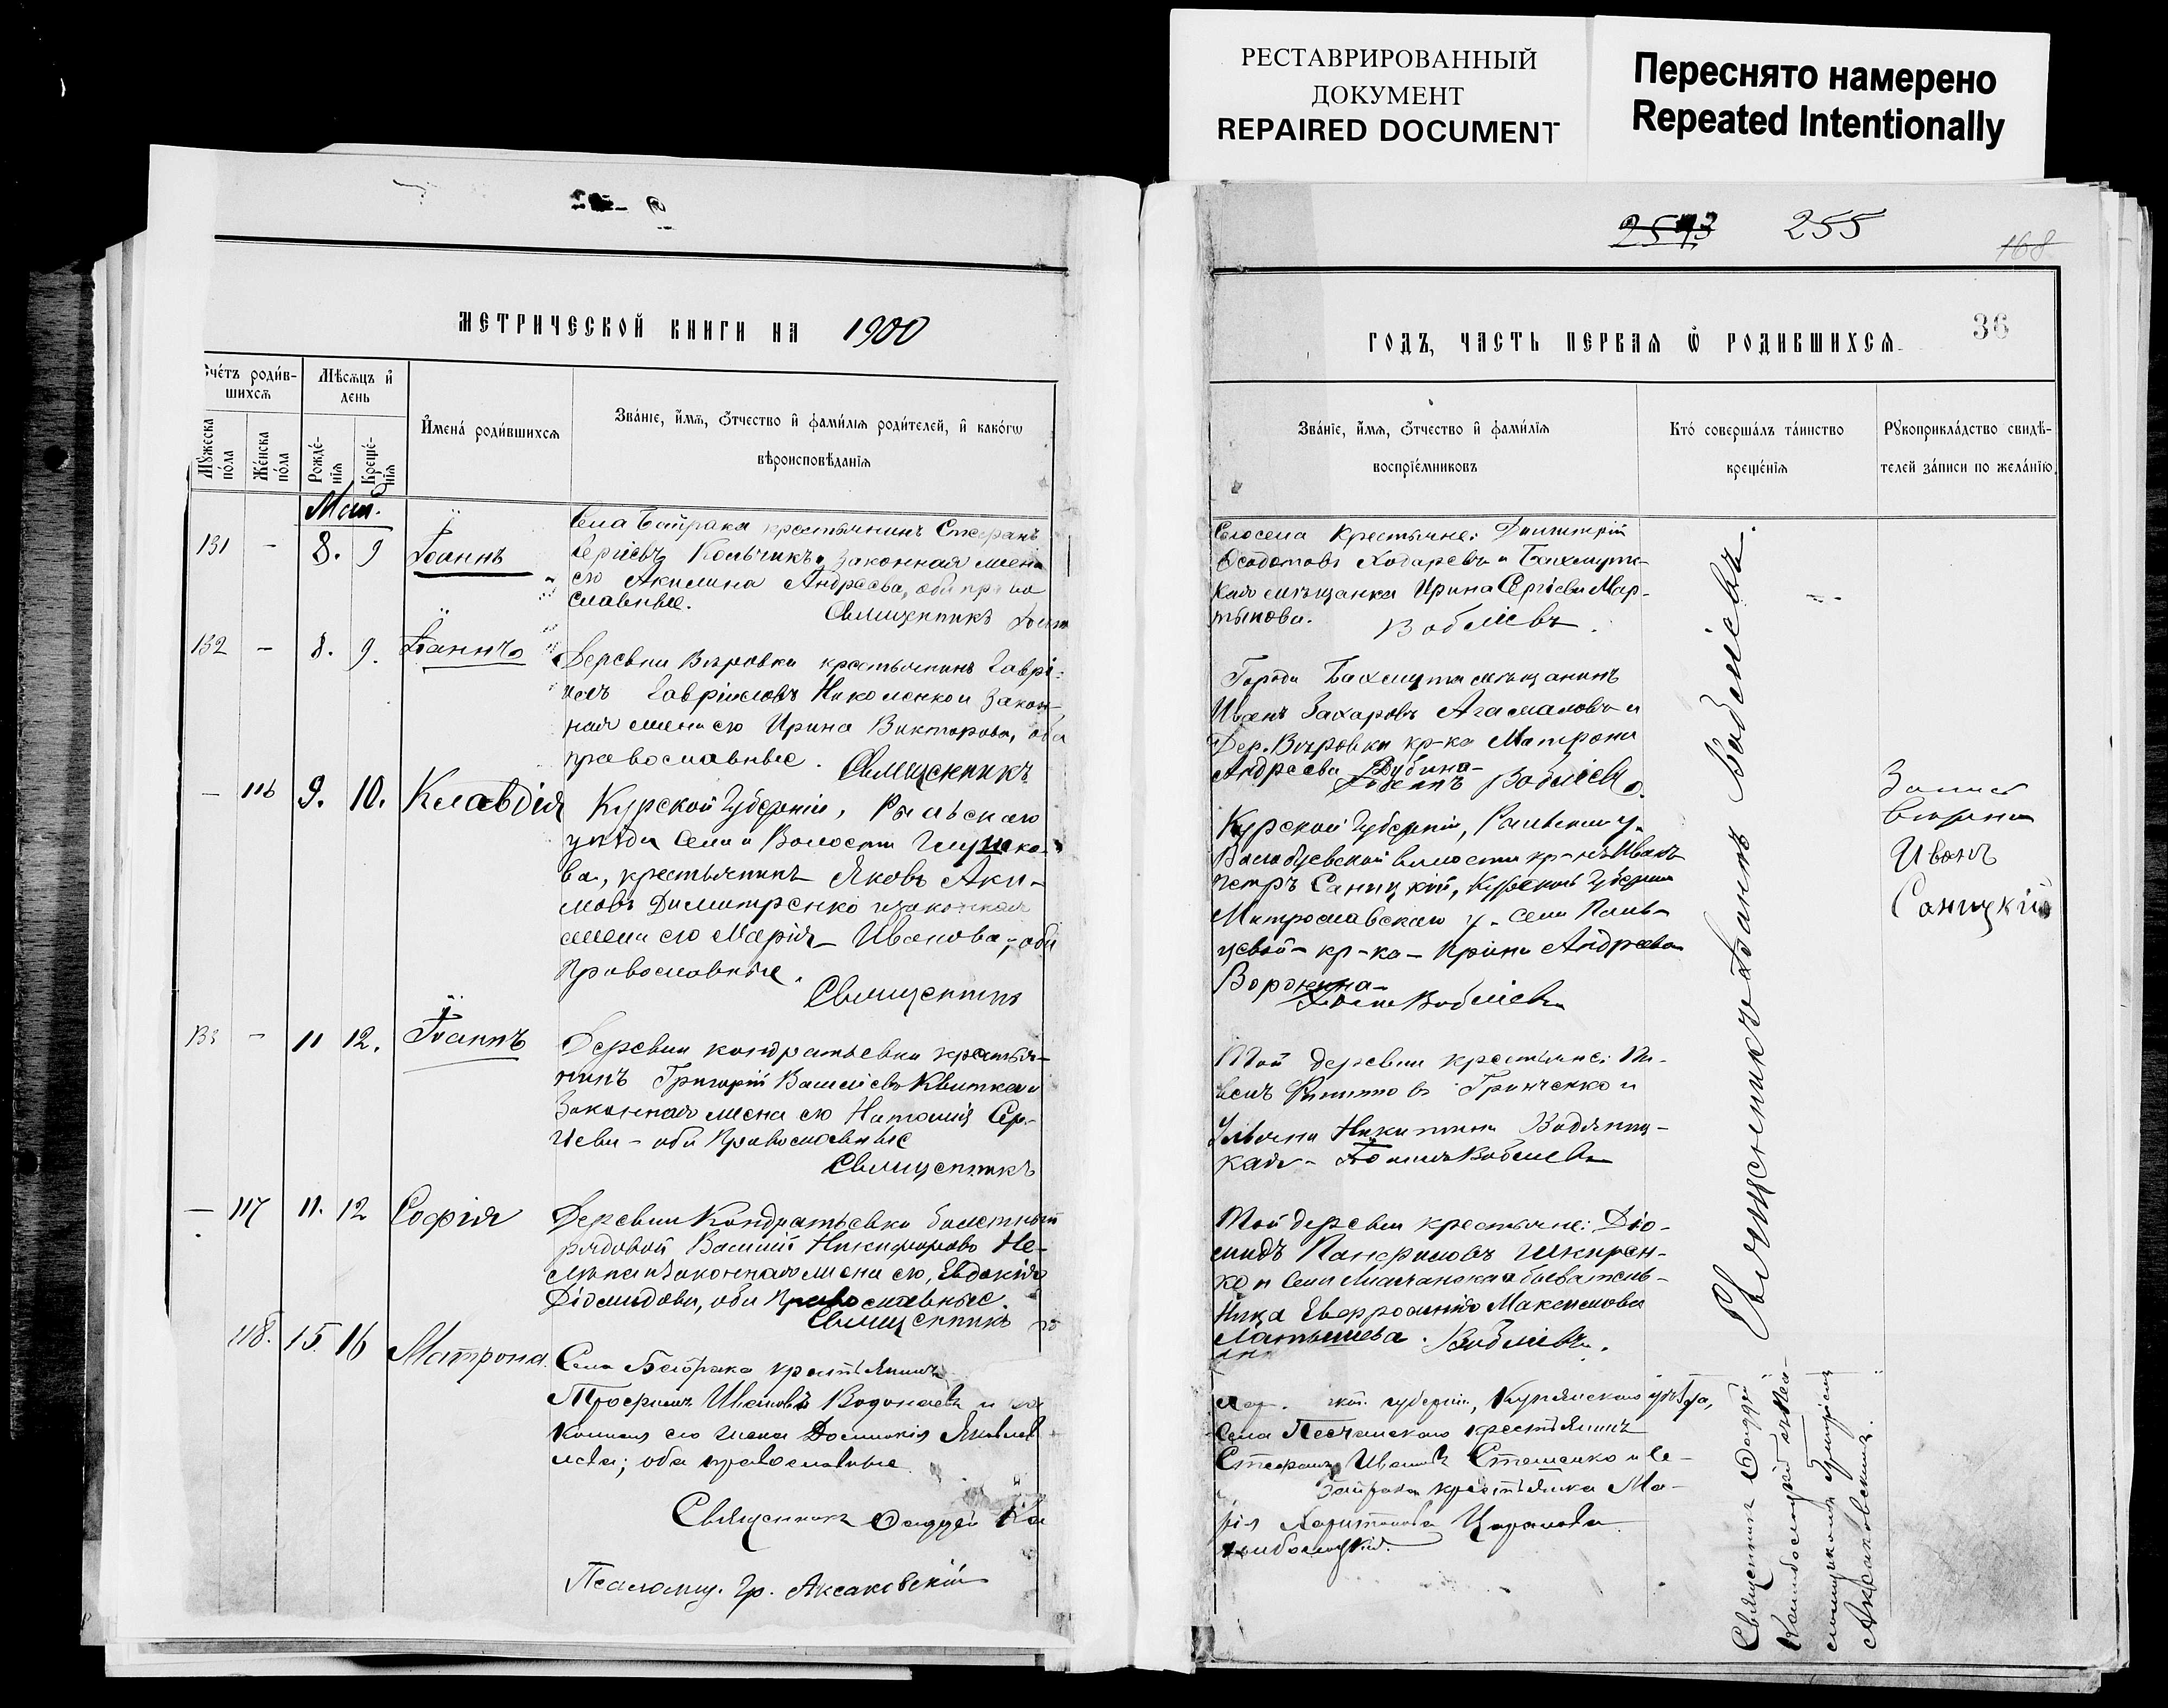 РЕСТАВРИРОВАННЫЙ
ДОКУМЕНТ
REPAIRED DOCUMENT
Переснято намерено
Repeated Intentionally
255
168
36
МЕТРИЧЕСКОЙ КНИГИ НА 1900
ГОДЪ, ЧАСТЬ ПЕРВАЯ Ѽ РОДИВШИХСЯ
Счéтъ роди́в-
шихсѧ
Мѣсѧцъ и҆
день
Мꙋжеска
по́ла
Же́нска
по́ла
Рожде́-
нїѧ
Креще́-
нїѧ
И҆мена̀ роди́вшихсѧ
Зва́нїе, и҆́мѧ, ѻ҆́тчество и҆ фами́лїѧ роди́телей, и҆ како́гѡ
вѣроисповѣ́данїѧ
Зва́нїе, и҆́мѧ, ѻ҆́тчество и҆ фами́лїѧ
воспрїе́мниковъ
Кто̀ соверша́лъ та́инство
креще́нїѧ
Рꙋкоприкла́дство свидѣ́-
телей за́писи по жела́нїю.
Май.
131 - 8. 9 Іоаннъ
Села Байрака крестьянинъ Стефанъ
Сергіевъ Кольчикъ и законная жена
его Акилина Андреева, оба право
славные.
Священникъ
Того села крестьяне: Димитрій
Ѳеодотовъ Ходаревъ и Бахмутс-
кая мѣщанка Ирина Сергіева Мар-
тынова.
Воблiевъ.
132 - 8. 9. Іоаннъ
Деревни Вѣровки крестьянинъ Гаврі-
илъ Гавріиловъ Николенко и закон-
ная жена его Ирина Викторова, оба
православные. Священникъ
Города Бахмута мѣщанинъ
Иванъ Захаровъ Агамаловъ и
Дер. Вѣровки кр-ка Матрона
Андреева Дубина
Іоаннъ Воблiевъ.
- 116 9. 10. Клавдія
Курской Губерніи, Рыльскаго
уѣзда Села и Волости Глушко-
ва, крестьянинъ Яковъ Аки-
мовъ Димитренко и законная
жена его Марія Иванова, оба
Православные.
Священникъ
Курской Губерніи, Рыльскаго у.
волости кр-нъ Иванъ
Петръ Саницкій, Курской Губерніи
кр-ка Ирина Андреева
Воронина
Іоаннъ Воблiевъ
Запись
вѣрна
Иванъ
Саницкій
133 - 11 12. Іоаннъ
Деревни Кондратьевки крестья-
нинъ Григорій Василіевъ Квитка и
Законная жена его Наталія Сер-
гіева - оба Православные
Священникъ
Той деревни крестьяне: Па-
велъ Филипповъ Гринченко и
Ульяна Никитина Водяниц-
кая - Іоаннъ Воблiевъ
- 117 11. 12 Софія
Деревни Кондратьевки билетный
рядовой Василій Никифоровъ Не-
и законная жена его, Евдокія
Діомидова, оба Православные.
Священникъ
Той деревни крестьяне: Діо-
мидъ Панфиловъ Шкирен-
ко и Села
Евфросинія Максимова
Латышева. Воблiевъ.
118. 15. 16 Матрона
Села Байрака крестьянинъ
Трофимъ Ивановъ Водолаевъ и за
конная его жена Домникія Яковле
оба православные
Священникъ Ѳаддей
Псаломщ. Гр. Аксаковскій
губерніи, Купянскаго уѣзда,
Села Песчанскаго крестьянинъ
Стефанъ Ивановъ Стешенко и се-
Байрака крестьянка Ма-
рія Харитонова Царалова
Священникъ Іоаннъ Воблiевъ.
Священникъ Ѳаддей
Аксаковскимъ.